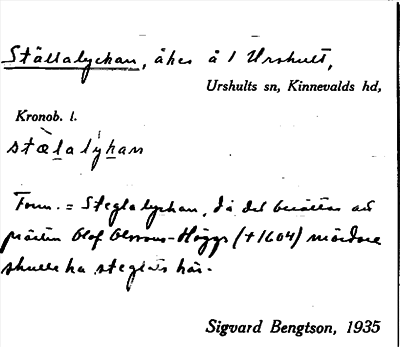 Ställalyckan, åker å 1 Urshult,
Urshults sn, Kinnevalds hd,
Kronob. l.
stælalyhan
Form. = Steglalyckan, då det berättas att
prästen Olof Olssons-Höggs (+1604) mördare
skulle ha steglats här.
Sigvard Bengtson, 1935